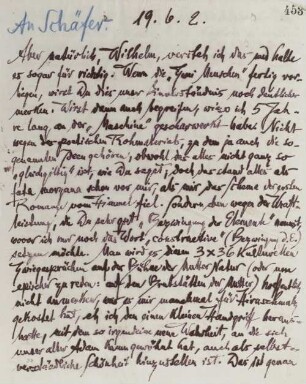 453
An Schäfer.
19. 6. 2.
Aber natürlich, Wilhelm, versteh ich das und halte
es sogar für richtig. Wenn die „Zwei Menschen" fertig vor-
liegen, wirst Du dies unser Einverständnis noch deutlicher
merken. Wirst dann auch begreifen, wieso ich 5 Jah-
re lang an der „Maschine" habe. Nicht
wegen des poetischen Rohmaterials, zu dem ja auch die so-
genannten Ideen gehören, obwohl das alles nicht ganz so
gleichgiltig ist, wie Du sagst; doch das stand alles als
fata morgana schon vor mir, als mir das Schema der ersten
Romanze vom Himmel fiel. Sondern eben wegen der
leistung, die Du sehr gut „Bezwingung der Elemente" nennst,
wovor ich nur noch das Wort „constructive" (Bezwingung)
setzen möchte. Man wird es diesen 3 x 36
auf der Bühne der Mutter Natur (oder um
epischer zu reden: auf den der Mutter) hoffentlich
nicht anmerken, was es mir manchmal für Hirnschmalz
gekostet hat, eh ich den einen kleinen Handgriff heraus
hatte, mit dem so irgendeine neue Wahrheit, an die sich
unser alter Adam kaum gewöhnt hat, auch als selbst-
verständliche Schönheit hinzustellen ist. Das ist genau